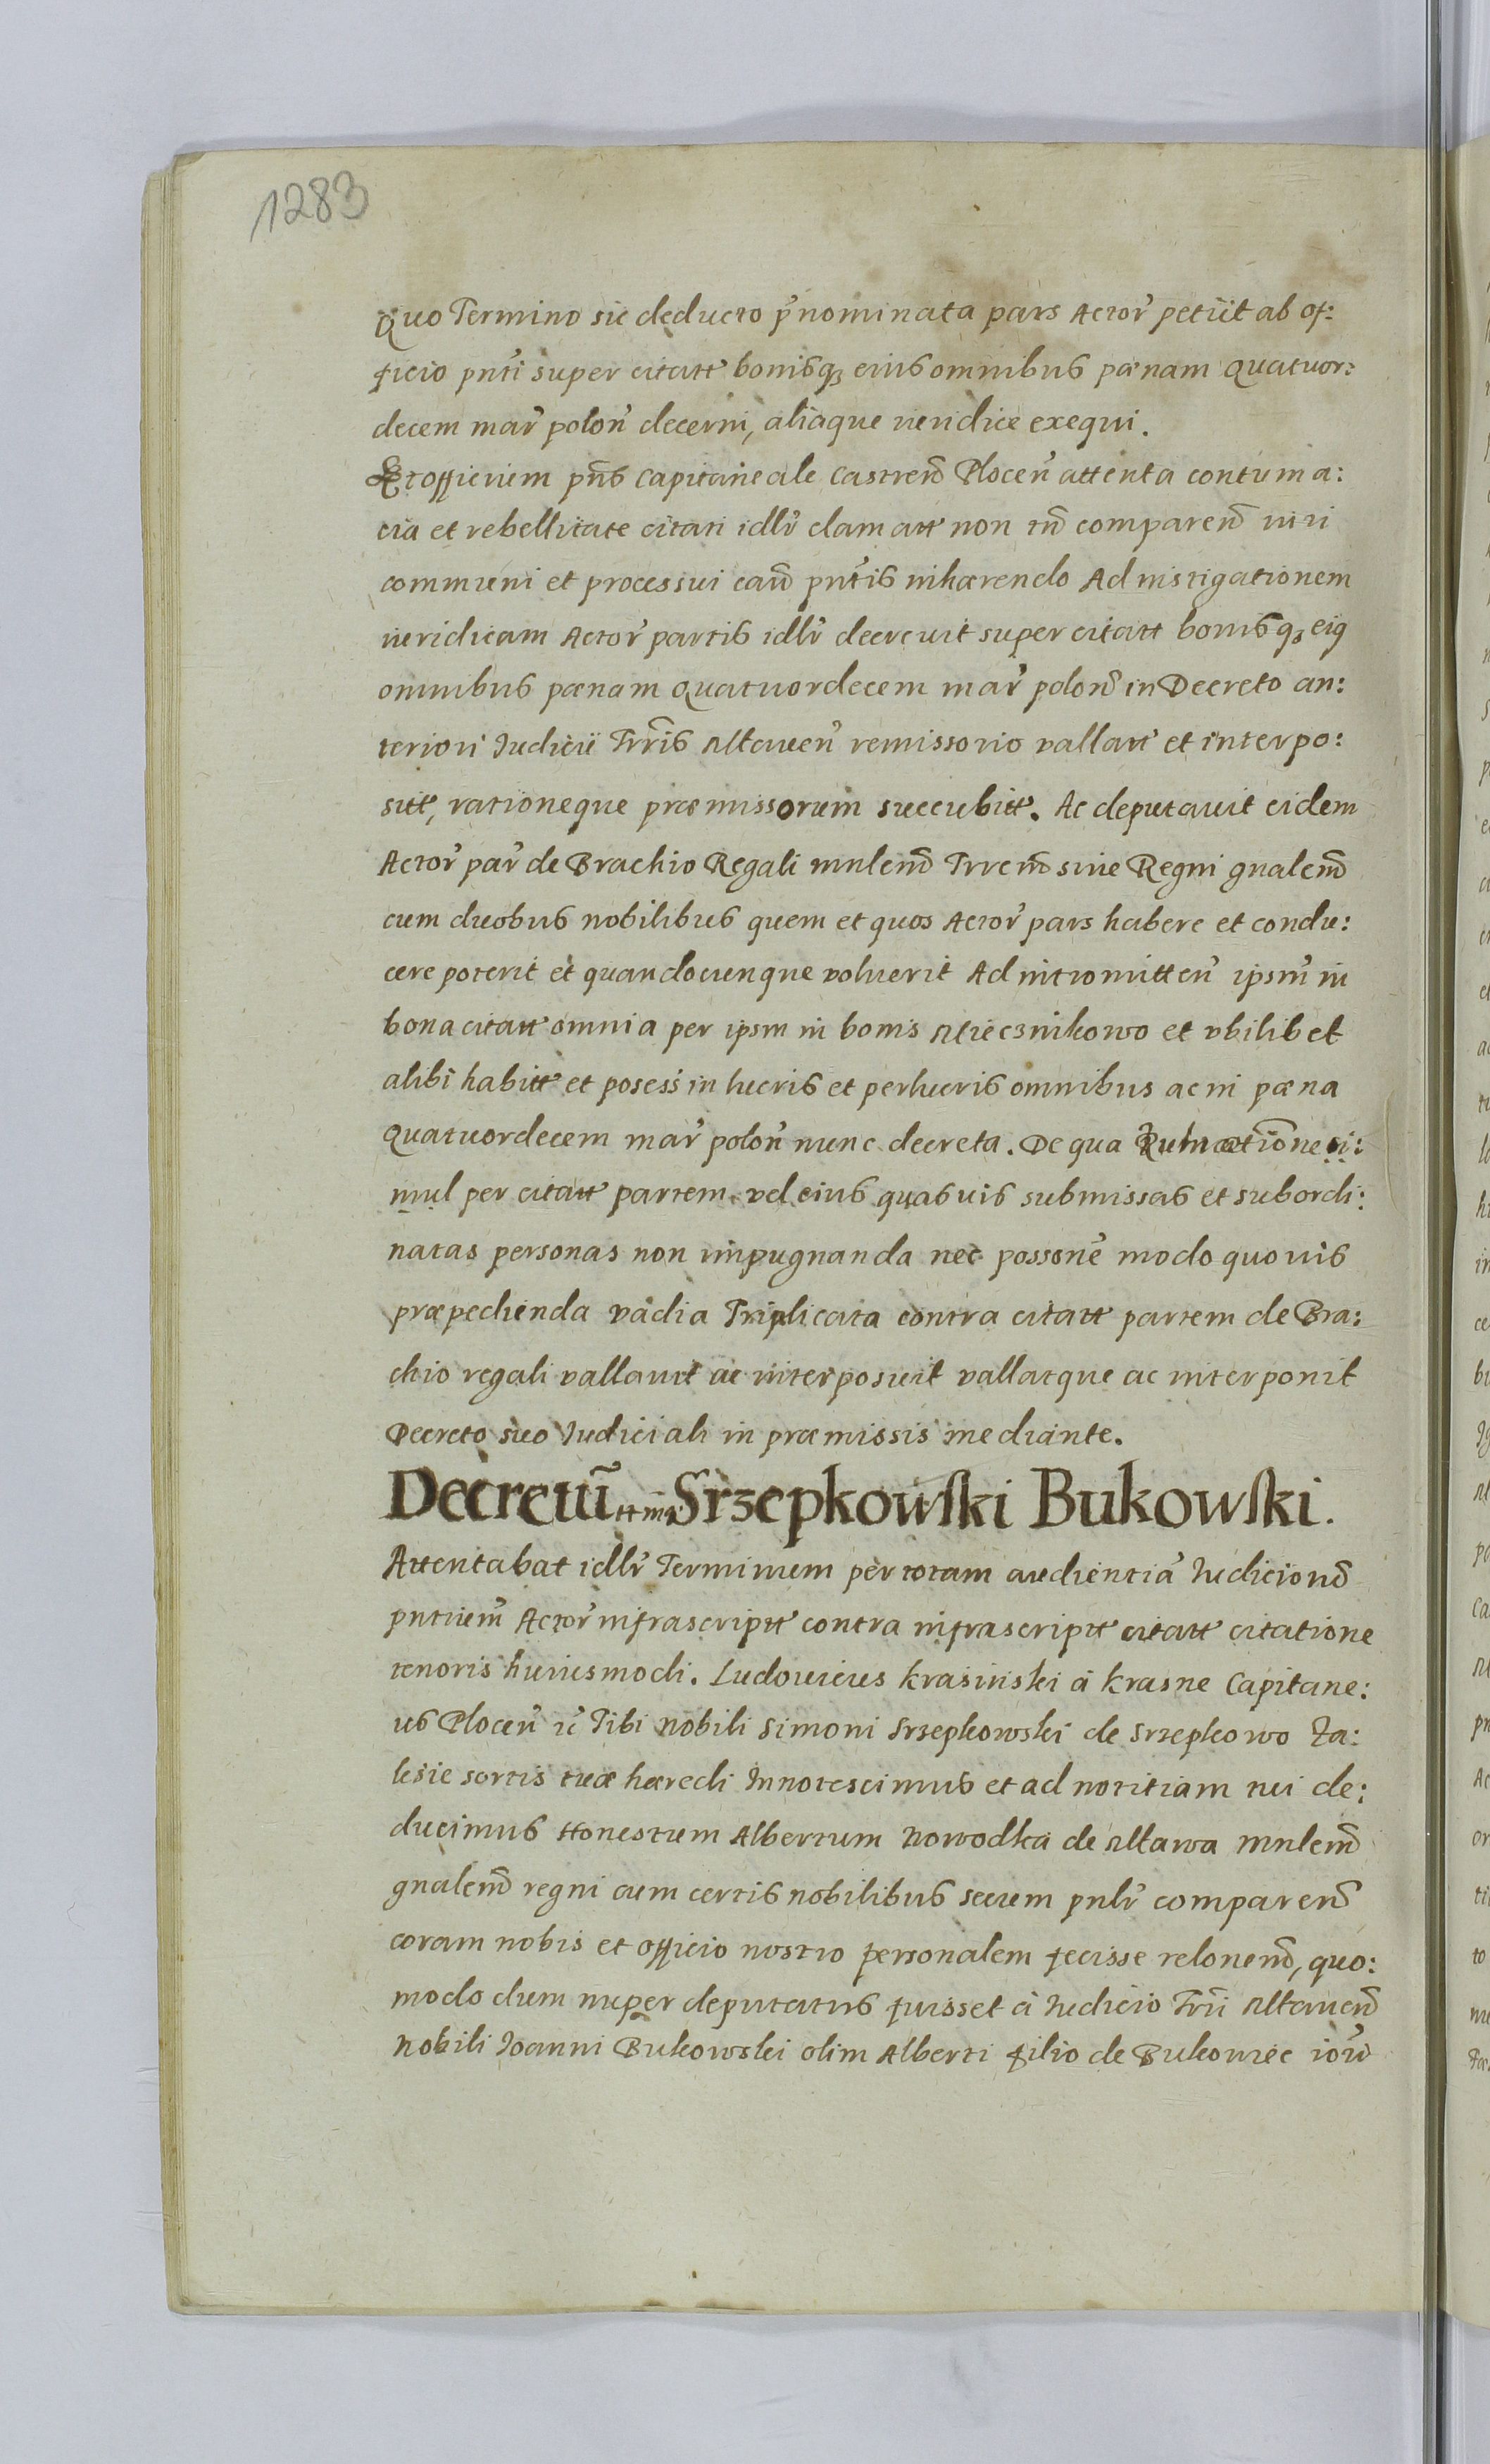 1283
Quo Termino sic deducto p̃nominata pars Actor̃ petiit ab of:
ficio pñti super citatt bonisqʒ eius omnibus pœnam quatuor:
decem mar̃ poloñ decerni, aliaque iuridice exequi.
Et officium pñs Capitaneale Castren̄ Plocen̄ attenta contuma:
cia et rebellitate citati idlr̃ clamatt non tn̄ comparen̄ iuri
communi et processui caū pñtis inhærendo Ad instigationem
iuridicam Actor̃ partis idlr̃ decrevit super citatt bonisqʒ eiꝰ
omnibus pœnam quatuordecem mar̃ polon̄ in Decreto an:
teriori Iudicii Trr̃is Mlaven̄ remissorio vallatt et interpo:
sitt, rationeque præmissorum succubitt. Ac deputavit eidem
Actor̃ par̃ de Brachio Regali mnlem̄ Trrem̄ sive Regni gnalem̄
cum duobus nobilibus quem et quos Actor̃ pars habere et condu:
cere poterit et quandocunque voluerit Ad intromitten̄ ipsm̃ in
bona citatt omnia per ipsm in bonis Miecznikowo et ubilibet
alibi habitt et posess̃ in lucris et perlucris omnibus ac in pœna
quatuordecem mar̃ polon̄ nunc decreta. De qua si:
mul per citatt partem vel eius quasvis submissas et subordi:
natas personas non impugnanda nec possone̅ modo quovis
præpedienda vadia Triplicata contra citatt partem de Bra:
chio regali vallavit ac interposuit vallatque ac interponit
Decreto suo Iudiciali in præmissis mediante.
Decretū Srzepkowski Bukowski.
Attentabat idlr̃ Terminum per totam audientiã Iudicion̄
pntium̃ Actor̃ infrascriptt contra infrascriptt citatt citatione
tenoris huiusmodi. Ludovicus Krasinski à Krasne Capitane:
us Plocen̄ ic̃ Tibi Nobili Simoni Srzepkowski de Srzepkowo Za:
lesie sortis tuæ hæredi Innotescimus et ad notitiam tui de:
ducimus Honestum Albertum Nowodka de Mlawa Mnlem̄
gnalem̄ regni cum certis nobilibus secum pnlr̃ comparen̄
coram nobis et officio nostro personalem fecisse relonem̄, quo:
modo dum nuper deputatus fuisset à Iudicio Trri Mlaven̄
Nobili Ioanni Bukowski olim Alberti filio de Bukowiec